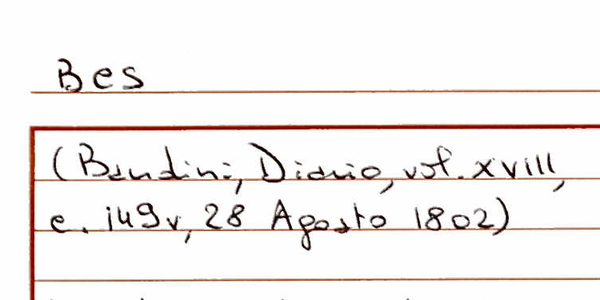 Bes
(Bandini, Diario, vol. XVIII,
c. 149v, 28 Agosto 1802)